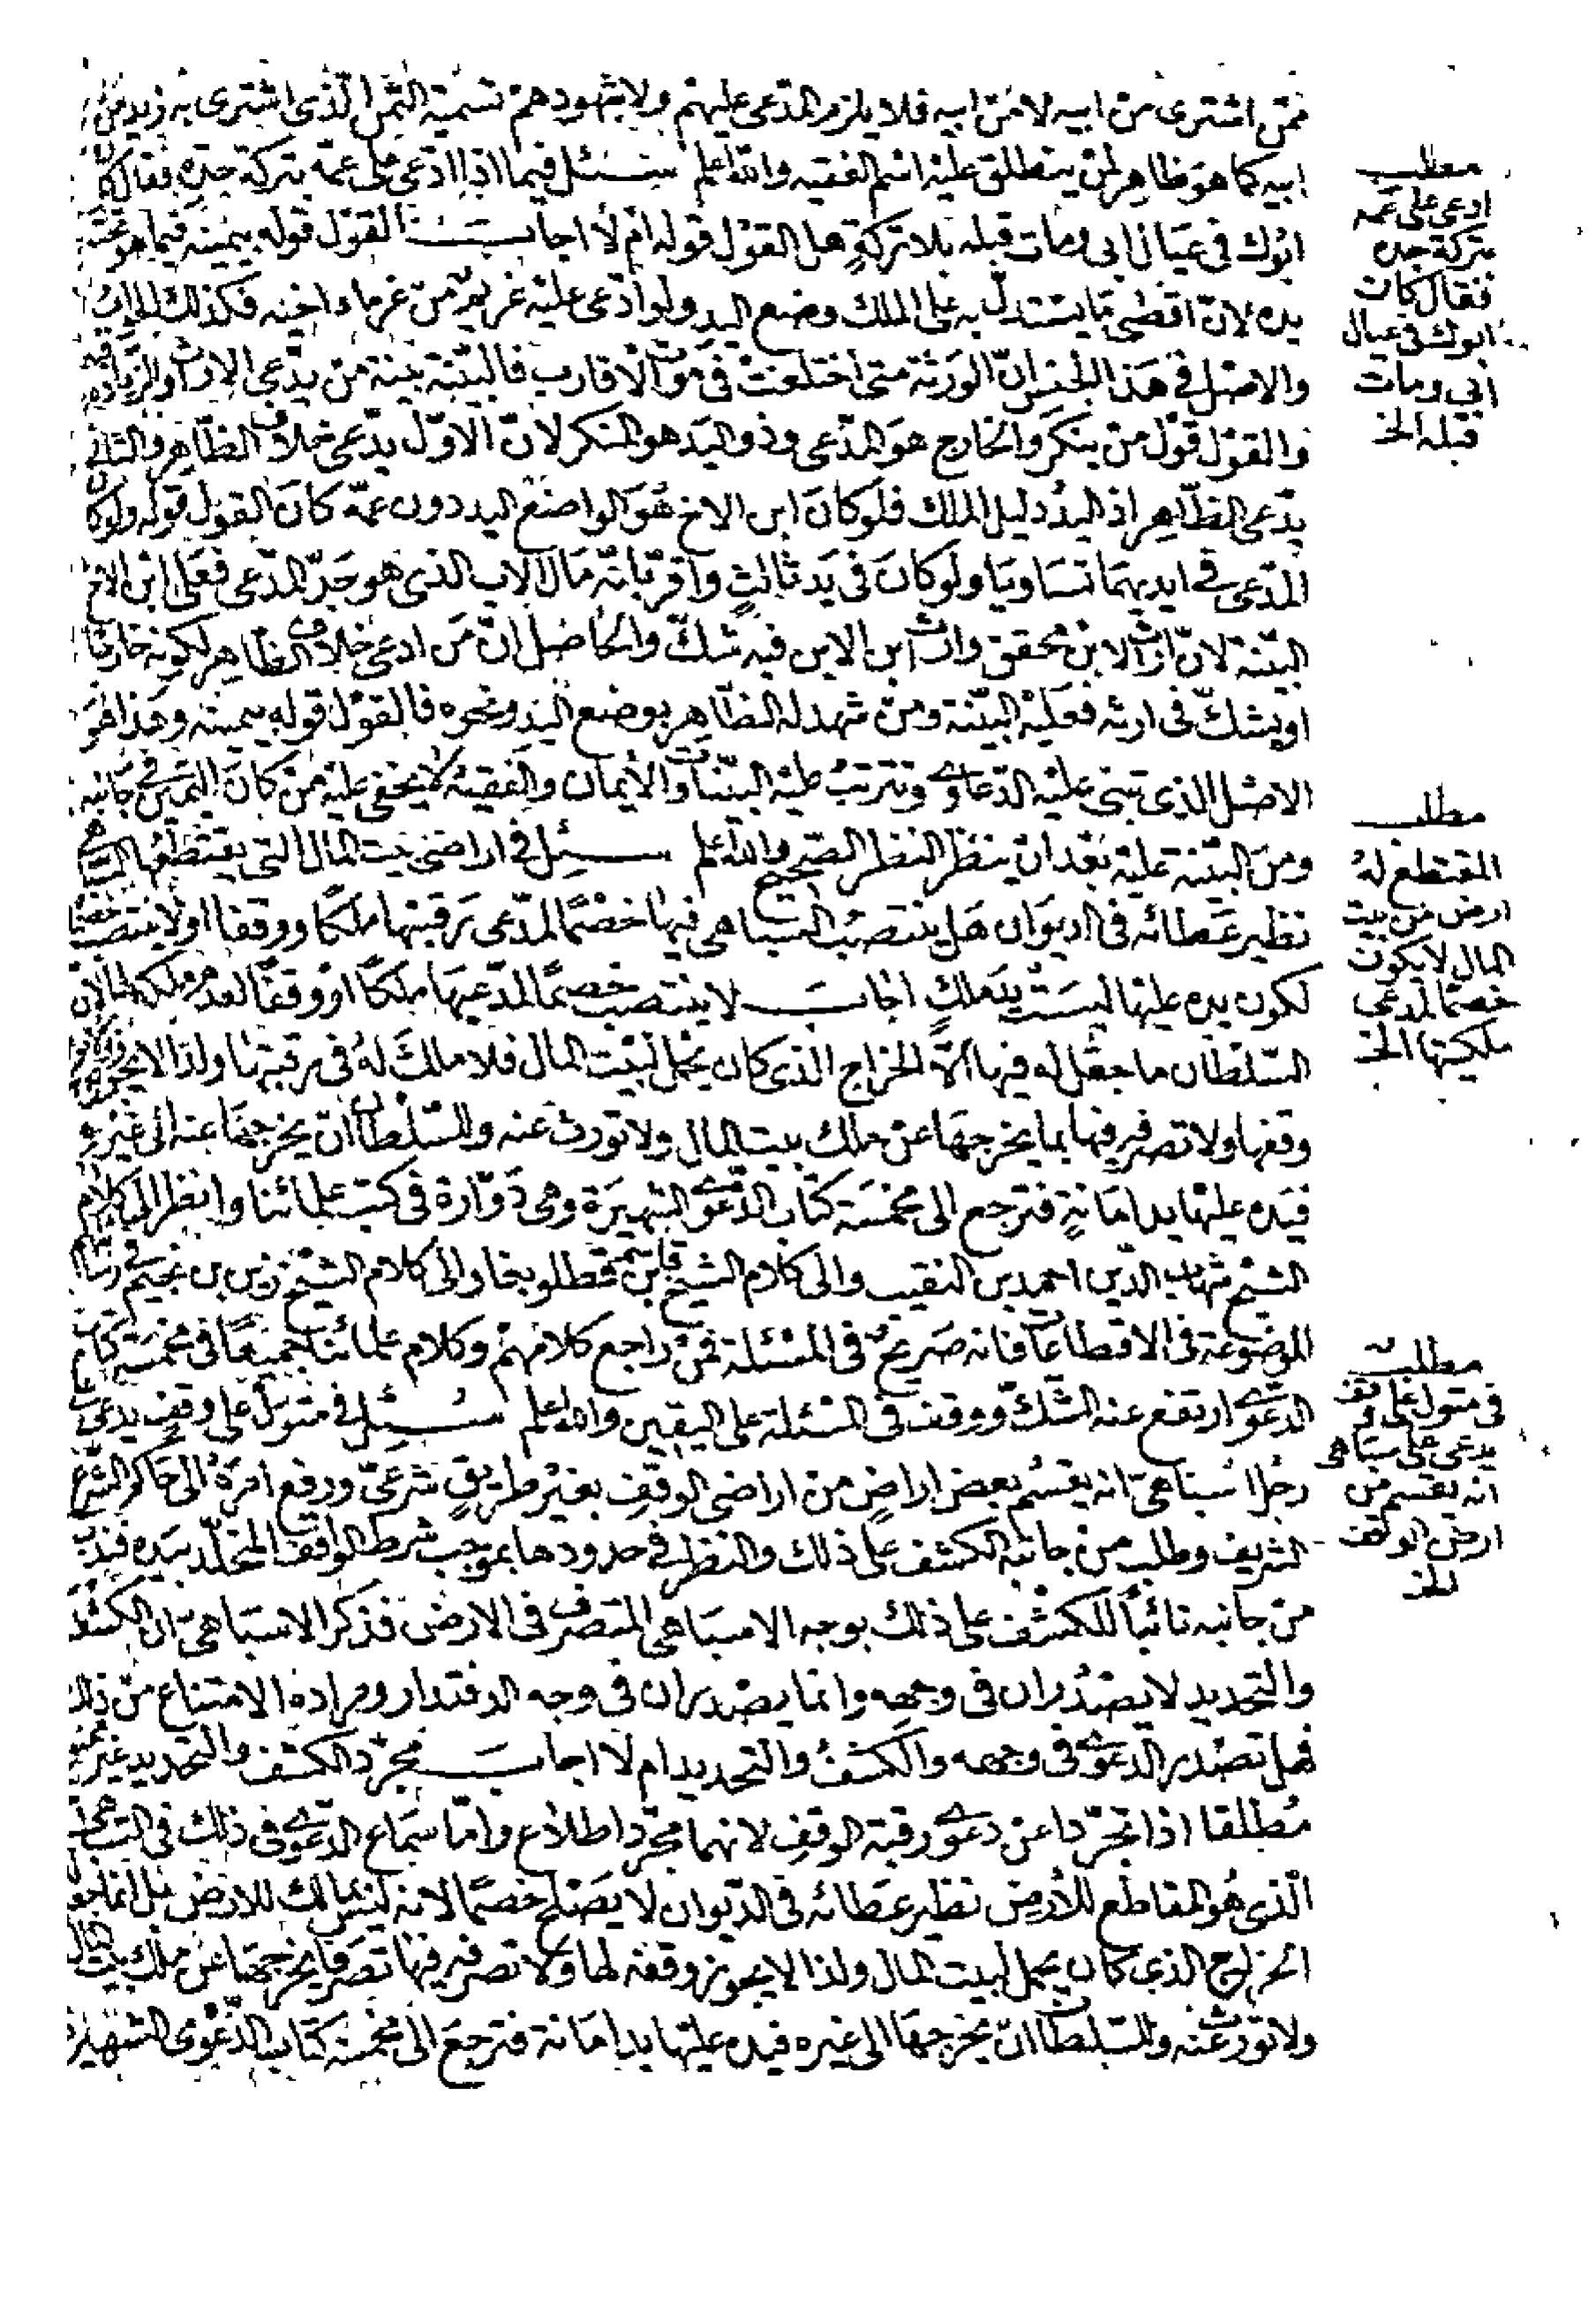 فمن اشترى من ابيه لا ممن ابيه فلا يلزم المدعى عليهم ولا شهودهم تسمية الثمن الذى اشترى به زيد من
ابيه كما هو ظاهر لمن ينطلق عليه اسم الفقيه والله اعلم سئل فيما اذا ادعى على عمه بتركة جده فقال كان
ابوك فى عيال ابى ومات قبله بلا تركة هل القول قوله ام لا اجاب القول قوله بيمينه فيما هو تحت
يده لان اقصى ما يستدل به على الملك وضع اليد ولو ادعى عليه غريم من غرماء اخيه فكذلك الجواب
والاصل فى هذا الجنس ان الورثة متى اختلفت فى موت الاقارب فالبينة بينة من يدعى الارث والزيادة
والقول قول من ينكر والخارج هو المدعى وذو اليد هو المنكر لان الاول يدعى خلاف الظاهر والثانى
يدعى الظاهر اذ اليد دليل الملك فلو كان ابن الاخ هو الواضع اليد دون عمه كان القول قوله ولو كان
المدعى فى ايديهما تساويا ولو كان فى يد ثالث واقر بانه مال الاب الذى هو جد المدعى فعلى ابن الاخ
البينة لان ارث الابن محقق وارث ابن الابن فيه شك والحاصل ان من ادعى خلاف الظاهر لكونه خارجا
او يشك فى ارثه فعليه البينة ومن شهد له الظاهر بوضع اليد ونحوه فالقول قوله بيمينه وهذا هو
الاصل الذى تبنى عليه الدعاوى وتترتب عليه البينات والأيمان والفقيه لا يخفى عليه من كان اليمين فى جانبه
ومن البينة عليه بعد ان ينظر النظر الصحيح والله اعلم سئل فى اراضى بيت المال التى يقتطعها السباهى
نظير عطائه فى الديوان هل ينتصب السباهى فيها خصما لمدعى رقبتها ملكا ووقفا او لا ينتصب خصما
لكون يده عليها ليست يد ملك اجاب لا ينتصب خصما لمدعيها ملكا او وقفا لعدم ملكه لها لان
السلطان ما جعل له فيها الا الخراج الذى كان يحمل لبيت المال فلا ملك له فى رقبتها ولذا لا يجوز
وقفها ولا تصرفه فيها بما يخرجها عن ملك بيت المال ولا تورث عنه وللسلطان ان يخرجها عنه الى غيره
فيده عليها يد امانة فترجع الى مخمسة كتاب الدعوى الشهيرة وهى دوارة فى كتب علمائنا وانظر الى كلام
الشيخ شهاب الدين احمد بن النقيب والى كلام الشيخ قاسم بن قطلوبغا والى كلام الشيخ زين بن نجيم فى رسائل
الموضوعة فى الاقطاعات فانه صريح فى المسئلة فمن راجع كلامهم وكلام علمائنا جميعا فى مخمسة كتاب
الدعوى ارتفع عنه الشك ووقف فى المسئلة على اليقين والله اعلم سئل فى متول على وقف يدعى على
رجل اسباهى انه يقسم بعض اراض من اراضى الوقف بغير طريق شرعى ورفع امره الى حاكم الشرع
الشريف وطلب من جانبه الكشف على ذلك والنظر فى حدودها بموجب شرط الواقف المخلد بيده فندب
من جانبه نائبا للكشف على ذلك بوجه الاسباهى المتصرف فى الارض فذكر الاسباهى ان الكشف
والتحديد لا يصدران فى وجهه وانما يصدران فى وجه الدفتدار ومراده الامتناع من ذلك
فهل تصدر الدعوى فى وجهه والكشف والتحديد ام لا اجاب مجرد الكشف والتحديد غير
مطلقا اذا تجردا عن دعوى رقبة الوقف لانهما مجرد اطلاع واما سماع الدعوى فى ذلك فى السباهى
الذى هو المقاطع للارض نظير عطائه فى الديوان لا يصلح خصما لانه ليس بمالك للارض بل انما جعل
الخراج الذى كان يحمل لبيت المال ولذا لا يجوز وقفه لها ولا تصرفه فيها تصرفا يخرجها عن ملك بيت المال
ولا تورث عنه وللسلطان ان يخرجها الى غيره فيده عليها يد امانة فترجع الى مخمسة كتاب الدعوى الشهيرة
مطلب
ادعى على عمه
بتركة جده
فقال كان
ابوك فى عيال
ابى ومات
قبله الخ
مطلب
المقتطع له
ارض من بيت
المال لا يكون
خصما لمدعى
ملكيتها الخ
مطلب
فى متول على وقف
يدعى على سباهى
انه يقسم من
ارض الوقف
الخ